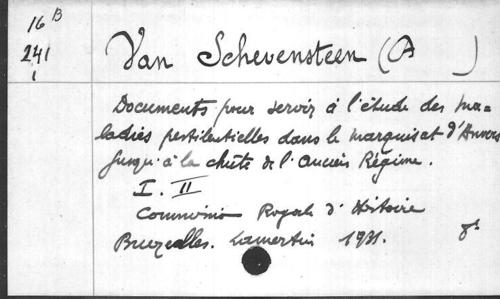 16 B
241
1
Van Schevensteen (A )
Documents pour servir à l'étude des ma-
ladies pestilentielles dans le marquisat d'Anvers
jusqu'à la chûte de l'Ancien Régime.
I. II
Commission Royale d'Histoire
Bruxelles. Lamertin 1931. 8º